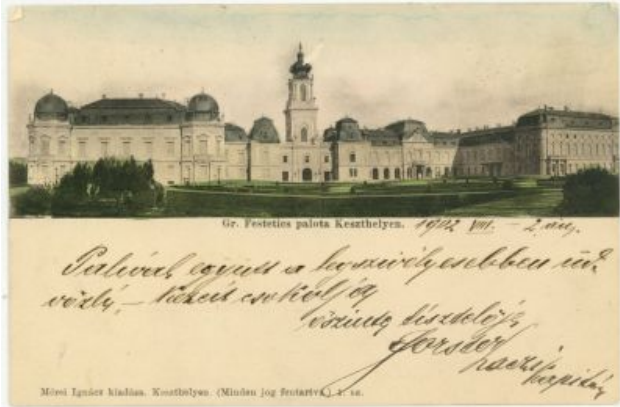 Gr. Festetics palota Keszthelyen. 1902 VIII. – 2 án.
Palival együtt a legszivélyesebben üd-
vözli, – kezeit csokolja
őszinte tisztelője
Forster
Laczi
kapitány
Mérei Ignácz kiadása. Keszthelyen. (Minden jog fentartva.) 1. sz.